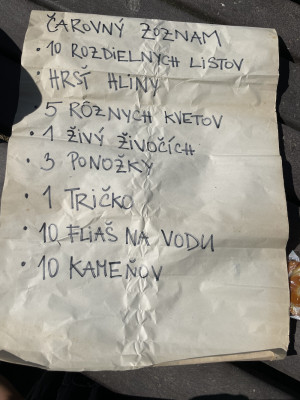 ČAROVNÝ ZOZNAM
• 10 ROZDIELNYCH LISTOV
• HRSŤ HLINY
• 5 RÔZNYCH KVETOV
• 1 ŽIVÝ ŽIVOČÍCH
• 3 PONOŽKY
• 1 TRIČKO
• 10 FLIAŠ NA VODU
• 10 KAMEŇOV